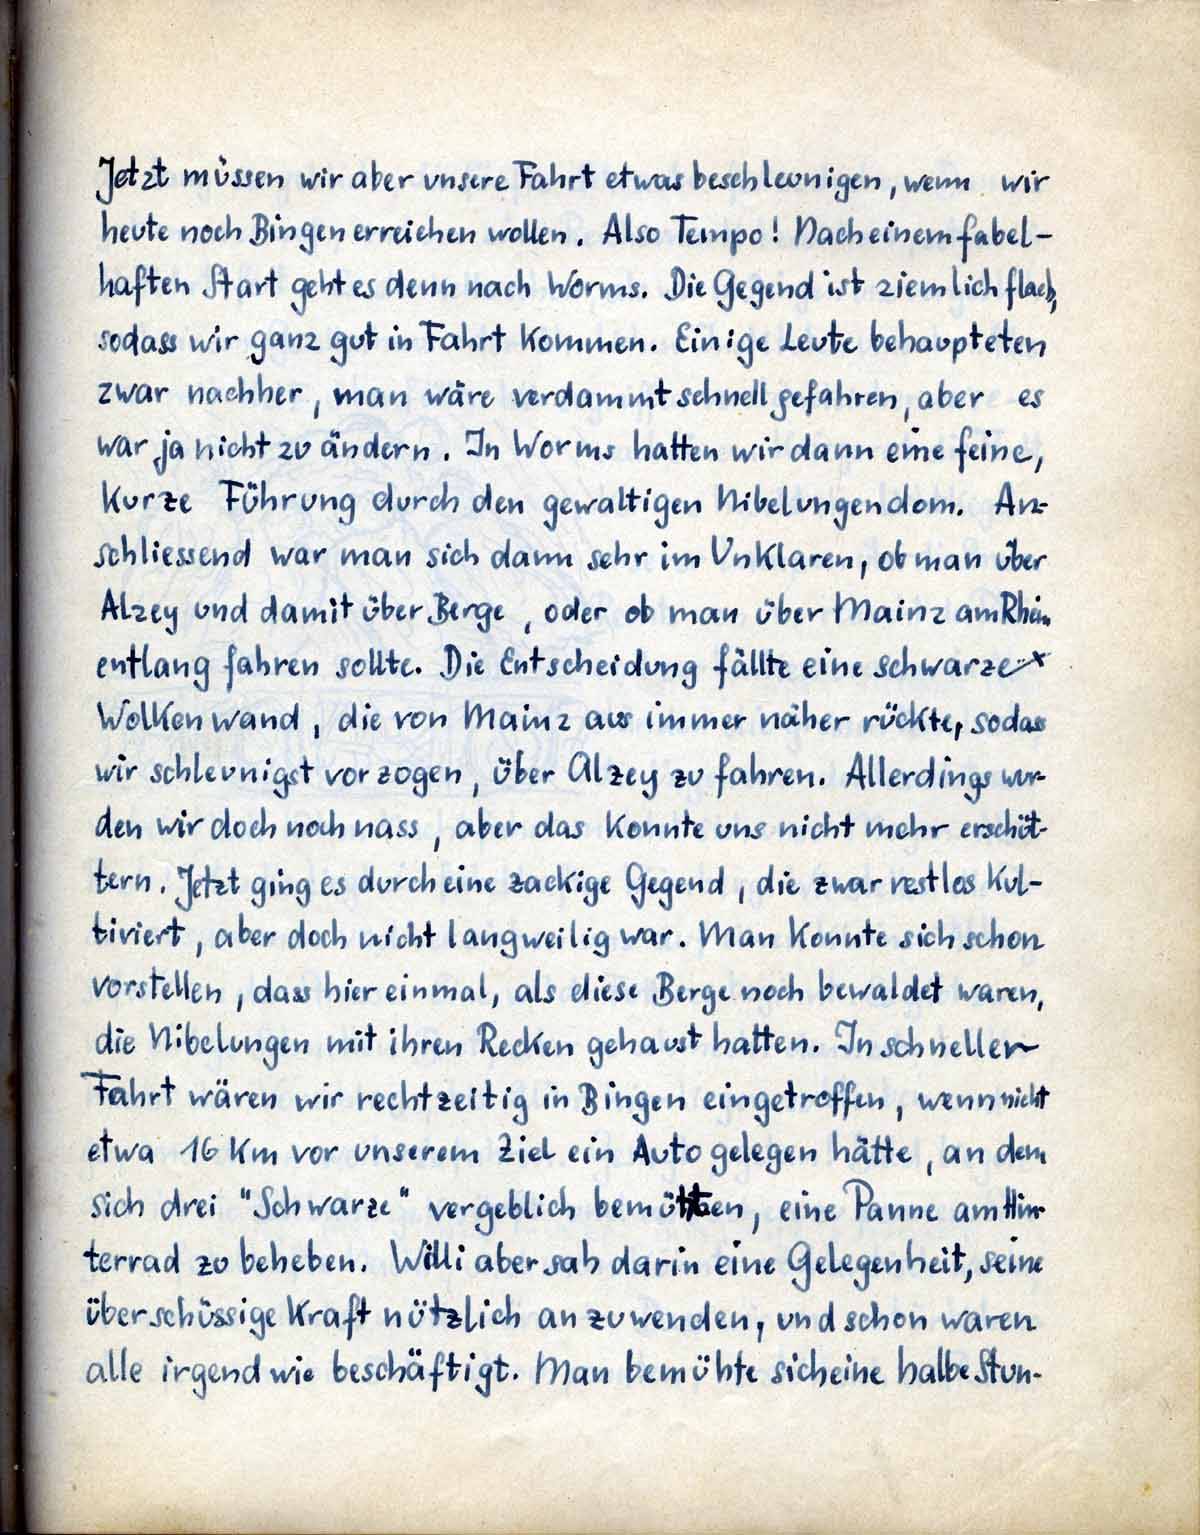 Jetzt müssen wir aber unsere Fahrt etwas beschleunigen, wenn wir
heute noch Bingen erreichen wollen. Also Tempo! Nach einem fabel-
haften Start geht es denn nach Worms. Die Gegend ist ziemlich flach,
sodass wir ganz gut in Fahrt kommen. Einige Leute behaupteten
zwar nachher, man wäre verdammt schnell gefahren, aber es
war ja nicht zu ändern. In Worms hatten wir dann eine feine,
kurze Führung durch den gewaltigen Nibelungendom. An-
schliessend war man sich dann sehr im Unklaren, ob man über
Alzey und damit über Berge, oder ob man über Mainz am Rhein
entlang fahren sollte. Die Entscheidung fällte eine schwarze
Wolkenwand, die von Mainz aus immer näher rückte, sodass
wir schleunigst vorzogen, über Alzey zu fahren. Allerdings wur-
den wir doch noch nass, aber das konnte uns nicht mehr erschüt-
tern. Jetzt ging es durch eine zackige Gegend, die zwar restlos kul-
tiviert, aber doch nicht langweilig war. Man konnte sich schon
vorstellen, dass hier einmal, als diese Berge noch bewaldet waren,
die Nibelungen mit ihren Recken gehaust hatten. In schneller
Fahrt wären wir rechtzeitig in Bingen eingetroffen, wenn nicht
etwa 16 Km vor unserem Ziel ein Auto gelegen hätte, an dem
sich drei "Schwarze" vergeblich bemühten, eine Panne am Hin-
terrad zu beheben. Willi aber sah darin eine Gelegenheit, seine
überschüssige Kraft nützlich anzuwenden, und schon waren
alle irgendwie beschäftigt. Man bemühte sich eine halbe Stun-